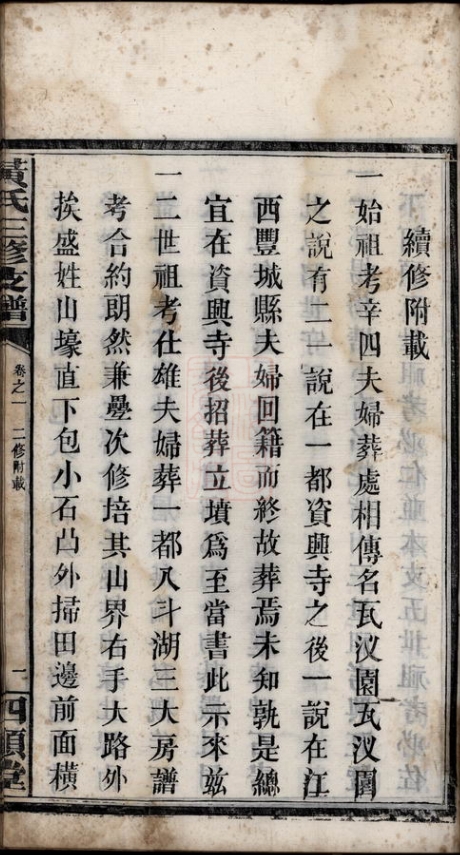 續修附載
一始祖考辛四夫婦葬處相傳名瓦汊園瓦汊園
之說有二一說在一都資興寺之後一說在江
西豐城縣夫婦回籍而終故葬焉未知孰是總
宜在資興寺後招葬立墳爲至當書此示來兹
一二世祖考仕雄夫婦葬一都八斗湖三大房譜
考合約朗然兼疊次修培其山界右手大路外
挨盛姓山壕直下包小石凸外掃田邊前面橫
黃氏三修支譜
卷之一 二修附載
一
四順堂